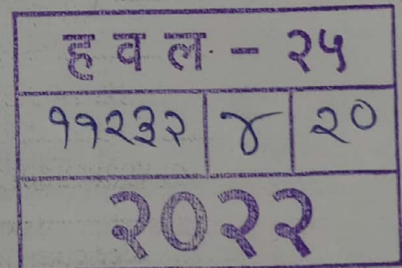 ह व ल - २५
११२३२ ४ २०
२०२२